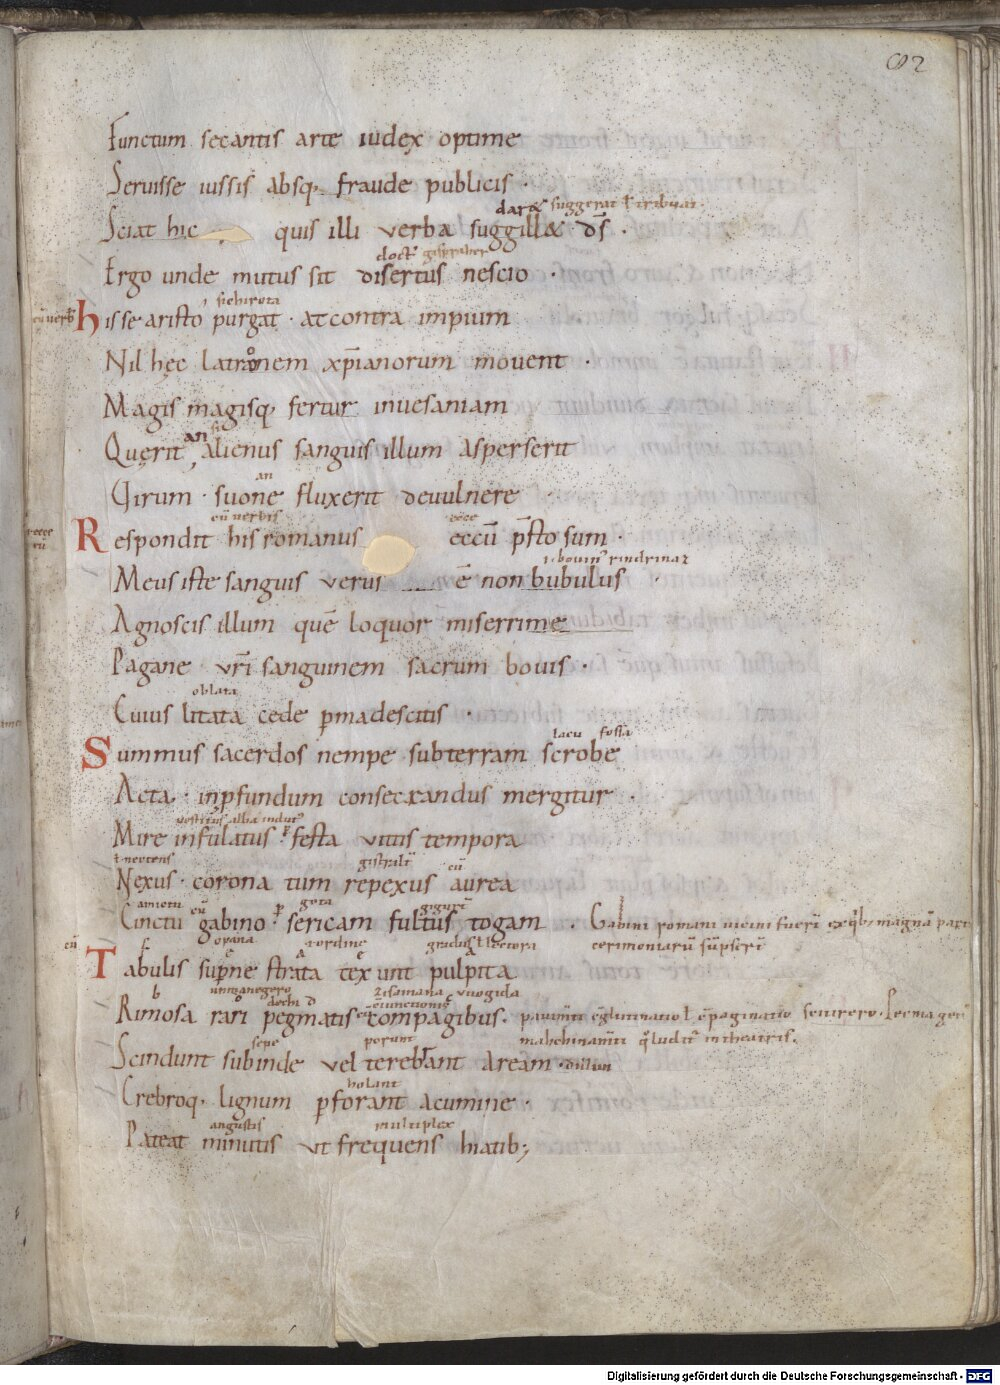 Functum secantis arte iudex optime
Seruisse iussis absq; fraude publicis ·
darꝫ suggerat ł tribuat
Sciat hic quis illi verba suggill& ds̄ ·
doctꝰ
Ergo unde mutus sit disertus nescio ·
sic hirota
hisse aristo purgat · at contra impium
Nil hęc latronem xp̄ianorum mouent ·
Magis magisq; fertur in uesaniam
an
Querit alienus sanguis illum asperserit
an
Girum · suone fluxerit de uulnere
cū uerbis ecce
Respondit his romanus eccū p̄sto sum ·
Meus iste sanguis verus ē non bubulus
Agnoscis illum quē loquor miserrime
Pagane vr̄i sanguinem sacrum bouis ·
oblata
Cuius litata cede pmadescitis ·
lacu fossa
Summus sacerdos nempe sub terram scrobe
Acta · in pfundum consecrandus mergitur
Mire infulatus · festa uittis tempora
ł nectens cū
Nexus · corona tum repexus aurea
amictu cū
Cinctu gabino · sericam fultus togam · Gabini romani uicini fuerī ex qͥb; magnā part
cū cerimoniarū sūpserī
Tabulis supne strata texunt pulpita
Rimosa rari pegmatis compagibus ·
sepe
Scindunt subinde vel terebrant aream ·
holant
Crebroq; lignum pforant acumine ·
angustis multiplex
Pateat minutis ut frequens hiatib;
Digitalisierung gefördert durch die Deutsche Forschungsgemeinschaft - DFG